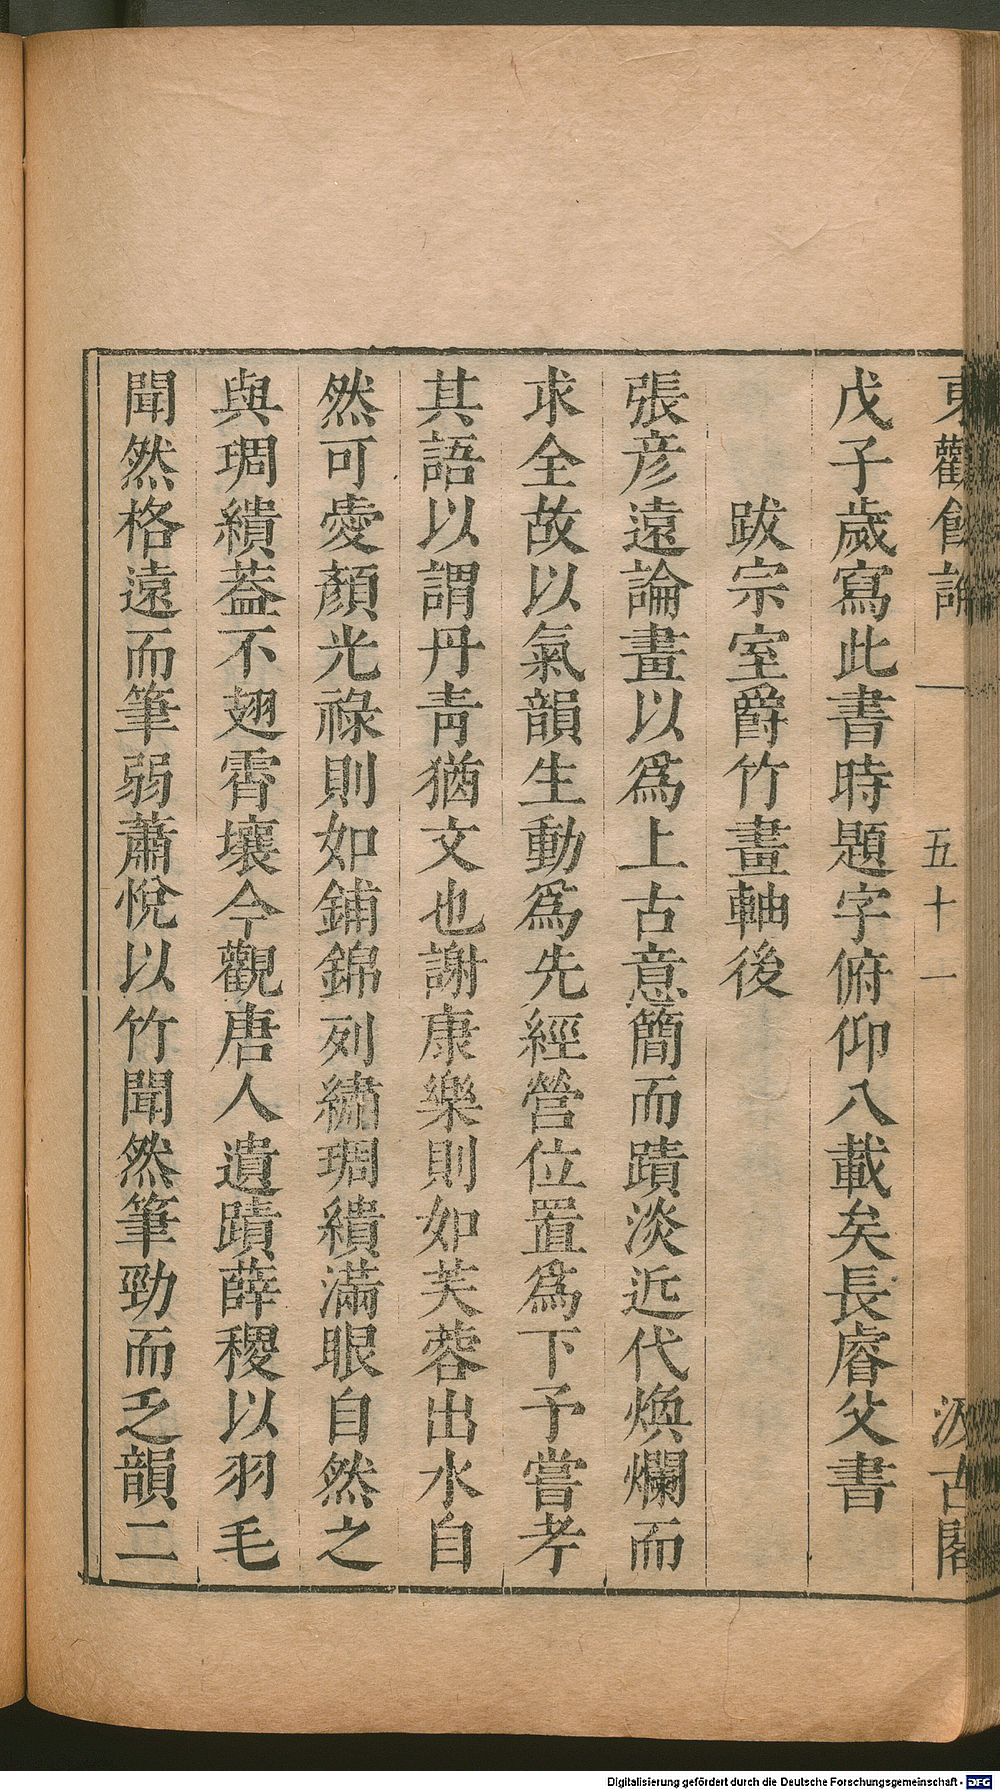 東觀餘論
一
五十一
汲古閣
戊子歲寫此書時題字俯仰八載矣長睿父書
跋宗室爵竹畫軸後
張彥遠論畫以爲上古意簡而蹟淡近代煥爛而
求全故以氣韻生動爲先經營位置爲下予嘗考
其語以謂丹靑猶文也謝康樂則如芙蓉出水自
然可愛顏光祿則如鋪錦列繡琱繢滿眼自然之
與琱繢葢不翅霄壤今觀唐人遺蹟薛稷以羽毛
聞然格遠而筆弱蕭悅以竹聞然筆勁而乏韻二
Digitalisierung gefördert durch die Deutsche Forschungsgemeinschaft - DFG